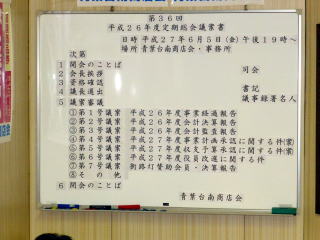 第36回
平成26年度定期総会議案書
日時 平成27年6月5日(金)午後19時~
場所 青葉台南商店会・事務所
次第
1 開会のことば 司会
2 会長挨拶
3 資格確認
4 議長選出 書記
議事録署名人
5 議案審議
①第1号議案 平成26年度事業経過報告
②第2号議案 平成26年度会計決算報告
③第3号議案 平成26年度会計監査報告
④第4号議案 平成27年度事業計画承認に関する件(案)
⑤第5号議案 平成27年度収支予算承認に関する件(案)
⑥第6号議案 平成27年度役員改選に関する件
⑦第7号議案 街路灯賛助会員・決算報告
⑧その他
6 閉会のことば
青葉台南商店会